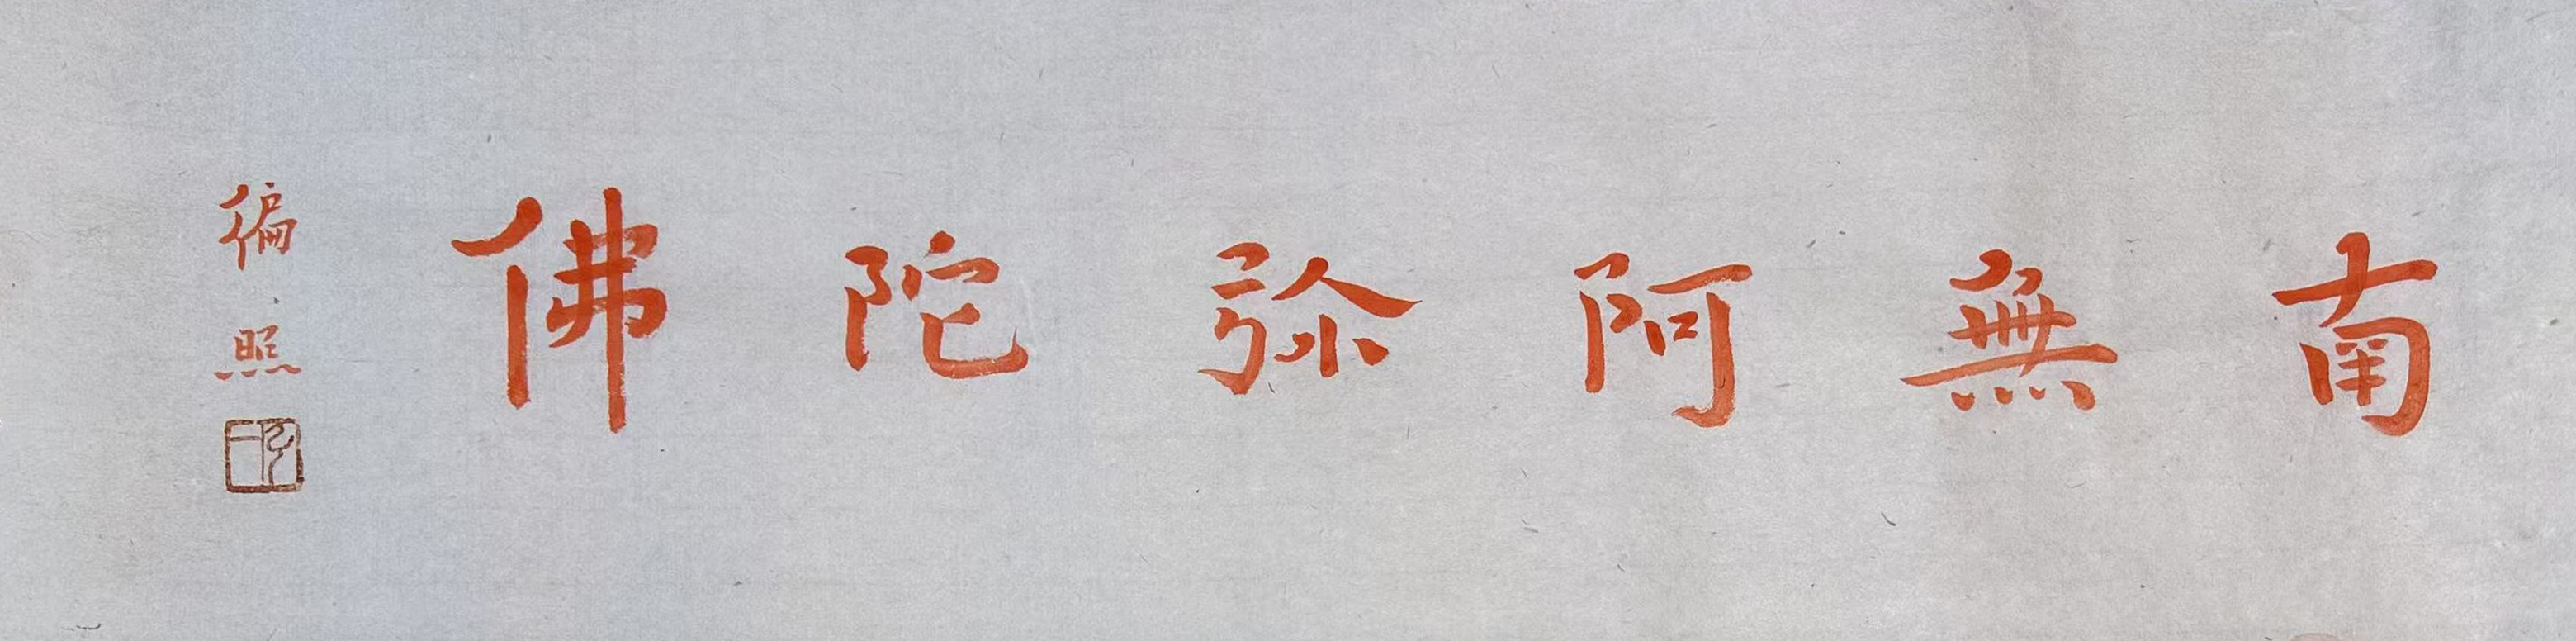 南無阿弥陀佛
徧照